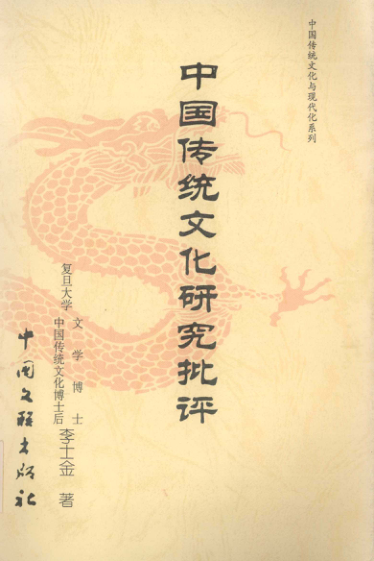 中国传统文化与现代化系列
中国传统文化研究批评
复旦大学 文学博士
中国传统文化博士后
李士金 著
中国文联出版社